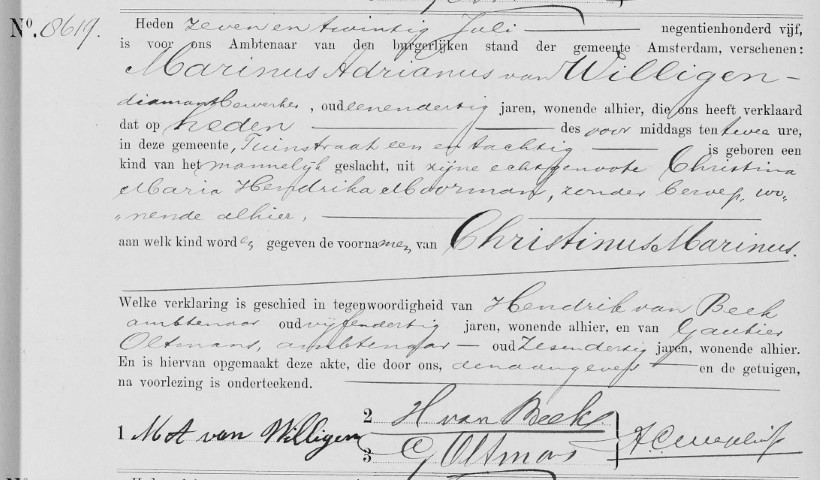 No. 8619.
Heden zeven en twintig Juli negentienhonderd vijf,
is voor ons Ambtenaar van den burgerlijken stand der gemeente Amsterdam, verschenen:
Marinus Adrianus van Willigen
diamantbewerker, oud eenendertig jaren, wonende alhier, die ons heeft verklaard
dat op heden des voor middags ten twee ure,
in deze gemeente, Tuinstraat een en tachtig is geboren een
kind van het mannelijk geslacht, uit zijne echtgenoote Christina
Maria Hendrika Moorman, zonder beroep, wo„
„nende alhier,
aan welk kind worden gegeven de voornamen van Christinus Marinus.
Welke verklaring is geschied in tegenwoordigheid van Hendrik van Beek
ambtenaar oud vijfendertig jaren, wonende alhier, en van Gautier
Oltmans, ambtenaar oud zesendertig jaren, wonende alhier.
En is hiervan opgemaakt deze akte, die door ons, den aangever en de getuigen,
na voorlezing is onderteekend.
1 M A van Willigen
2 H van Beek
3 G Oltmans